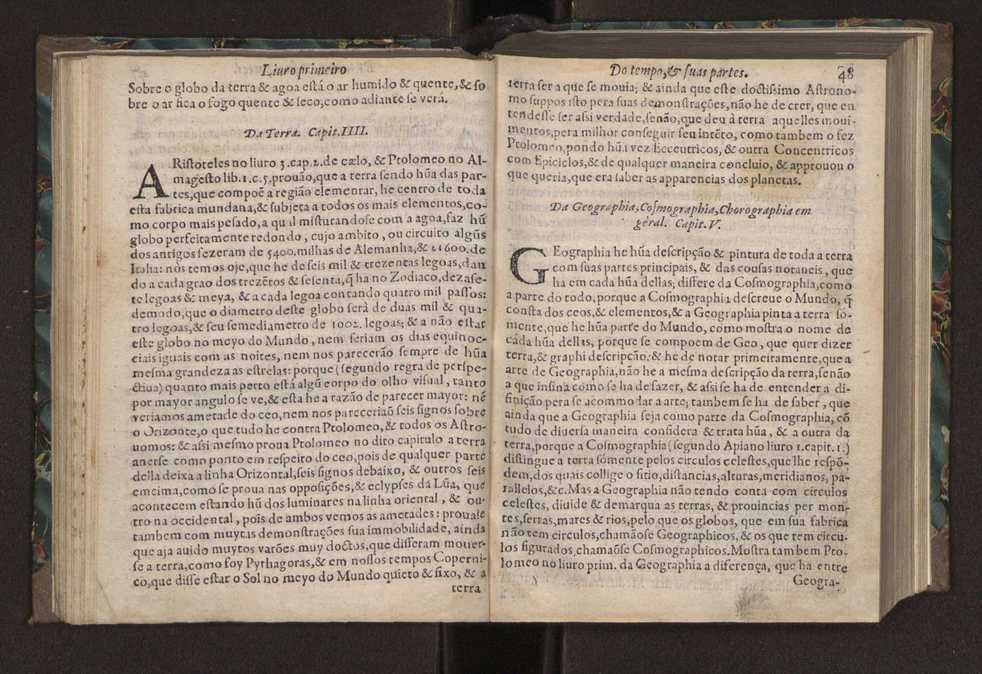 Liuro primeiro
Sobre o globo da terra & agoa está o ar humido & quente, & so
bre o ar fica o fogo quente & seco, como adiante se verá.
Da Terra. Capit. IIII.
ARistoteles no liuro 3. cap. 2. de cælo, & Ptolomeo no Al-
magesto lib. 1. c. 5. prouão, que a terra sendo hũa das par-
tes, que compoẽ a região elementar, he centro de toda
esta fabrica mundana, & subjeta a todos os mais elementos, co-
mo corpo mais pesado, a qu il misturandose com a agoa, faz hũ
globo perfeitamente redondo, cujo ambito, ou circuito algũs
dos antigos fezeram de 5400. milhas de Alemanha, & 21600. de
Italia: nòs temos oje, que he de seis mil & trezentas legoas, dan
do a cada grao dos trezẽtos & sesenta, q̃ ha no Zodiaco, dezase-
te legoas & meya, & a cada legoa contando quatro mil passos:
de modo, que o diametro deste globo serà de duas mil & qua-
tro legoas, & seu semediametro de 1002. legoas; & a não estar
este globo no meyo do Mundo, nem seriam os dias equinoc-
ciais iguais com as noites, nem nos parecerão sempre de hũa
mesma grandeza as estrelas: porque (segundo regra de perspe-
ctiua) quanto mais perto está algũ corpo do olho visual, tanto
por mayor angulo se vè, & esta he a razão de parecer mayor: nẽ
veriamos ametade do ceo, nem nos pareceriaõ seis signos sobre
o Orizonte, o que tudo he contra Ptolomeo, & todos os Astro-
nomos: & assi mesmo proua Ptolomeo no dito capitulo a terra
auerse como ponto em respeito do ceo, pois de qualquer parte
della deixa a linha Orizontal, seis signos debaixo, & outros seis
em cima, como se proua nas opposições, & eclypses da Lũa, que
acontecem estando hũ dos luminares na linha oriental, & ou-
tro na occidental, pois de ambos vemos as ametades: prouase
tambem com muytas demonstrações sua immobilidade, ainda
que aja auido muytos varões muy doctos, que disseram mouer-
se a terra, como foy Pythagoras, & em nossos tempos Coperni-
co, que disse estar o Sol no meyo do Mundo quieto & fixo, & a
terra
Do tempo, & suas partes. 48
terra ser a que se mouia; & ainda que este doctissimo Astrono-
mo suppos isto pera suas demonstrações, não he de crer, que en
tendesse ser assi verdade, senão, que deu à terra aquelles moui-
mentos, pera milhor conseguir seu intẽto, como tambem o fez
Ptolomeo, pondo hũa vez Eccentricos, & outra Concentricos
com Epiciclos, & de qualquer maneira concluio, & approuou o
que queria, que era saber as apparencias dos planetas.
Da Geographia, Cosmographia, Chorographia em
gèral. Capit. V.
GEographia he hũa descripção & pintura de toda a terra
com suas partes principais, & das cousas notaueis, que
ha em cada hũa dellas; differe da Cosmographia, como
a parte do todo, porque a Cosmographia descreue o Mundo, q̃
consta dos ceos, & elementos, & a Geographia pinta a terra so-
mente, que he hũa parte do Mundo, como mostra o nome de
cada hũa dellas, porque se compoem de Geo, que quer dizer
terra, & graphi descripção: & he de notar primeiramente, que a
arte de Geographia, não he a mesma descripção da terra, senão
a que insina como se ha de fazer, & assi se ha de entender a di-
finição pera se acommodar a arte, tambem se ha de saber, que
ainda que a Geographia seja como parte da Cosmographia, cõ
tudo de diuersa maneira considera & trata hũa, & a outra da
terra, porque a Cosmographia (segundo Apiano liuro 1. capit. 1.)
distingue a terra sòmente pelos circulos celestes, que lhe respõ-
dem, dos quais collige o sitio, distancias, alturas, meridianos, pa-
rallelos, &c. Mas a Geographia não tendo conta com circulos
celestes, diuide & demarqua as terras, & prouincias per mon-
tes, serras, mares & rios, pelo que os globos, que em sua fabrica
não tem circulos, chamãose Geographicos, & os que tem circu-
los figurados, chamãose Cosmographicos. Mostra tambem Pto-
lomeo no liuro prim. da Geographia a diferença, que ha entre
Geogra-